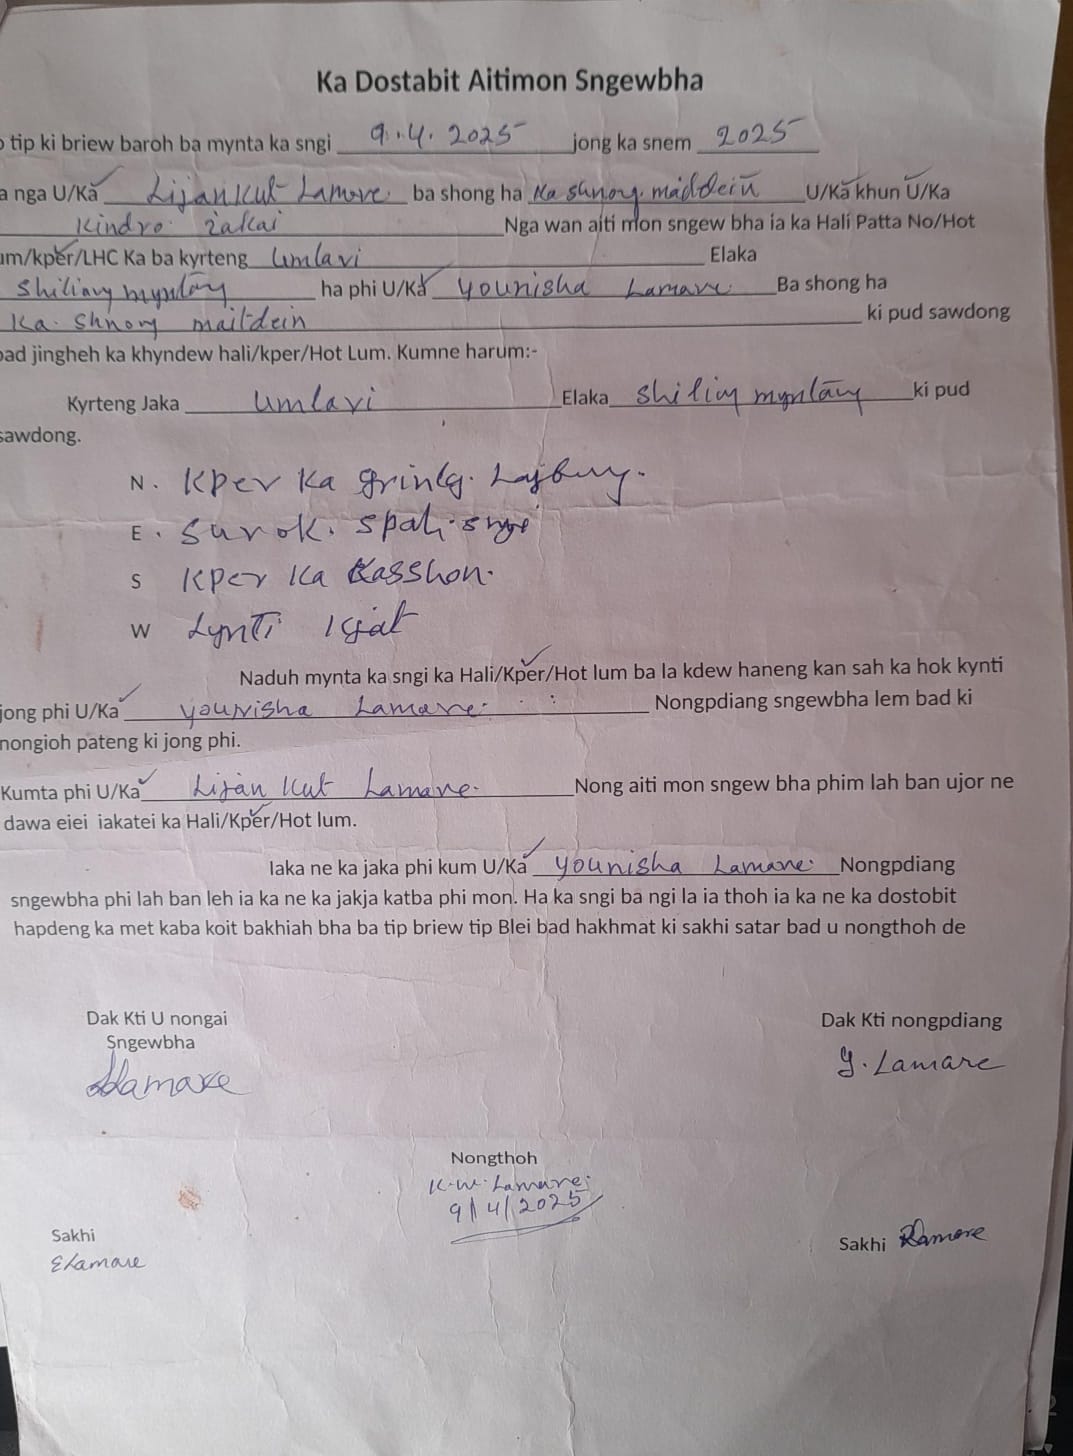 Ka Dostabit Aitimon Sngewbha
tip ki briew baroh ba mynta ka sngi 9.4.2025 jong ka snem 2025
a nga U/Ka Lijan Kut Lamare. ba shong ha Ka Shnong. U/Ka khun U/Ka
Kindro Nga wan aiti mon sngew bha ia ka Hali Patta No/Hot
um/kper/LHC Ka ba kyrteng Umlavi Elaka
Shiliang myntang ha phi U/Ka Younisha Lamare. Ba shong ha
Ka. Shnong maitdein ki pud sawdong
bad jingheh ka khyndew hali/kper/Hot Lum. Kumne harum:-
Kyrteng Jaka Umlavi Elaka myntang ki pud
sawdong.
N. Kper Ka
E. Surok.
S Kper Ka Kasshon.
W Lynti Kjat
Naduh mynta ka sngi ka Hali/Kper/Hot lum ba la kdew haneng kan sah ka hok kynti
jong phi U/Ka Younisha Lamare. Nongpdiang sngewbha lem bad ki
nongioh pateng ki jong phi.
Kumta phi U/Ka Lijan Kut Lamare. Nong aiti mon sngew bha phim lah ban ujor ne
dawa eiei iakatei ka Hali/Kper/Hot lum.
Iaka ne ka jaka phi kum U/Ka Younisha Lamare. Nongpdiang
sngewbha phi lah ban leh ia ka ne ka jakja katba phi mon. Ha ka sngi ba ngi la ia thoh ia ka ne ka dostobit
hapdeng ka met kaba koit bakhiah bha ba tip briew tip Blei bad hakhmat ki sakhi satar bad u nongthoh de
Dak Kti U nongai
Sngewbha
Lamare
Dak Kti nongpdiang
Y. Lamare
Nongthoh
K.W. Lamare.
9/4/2025
Sakhi
ELamare
Sakhi Lamare